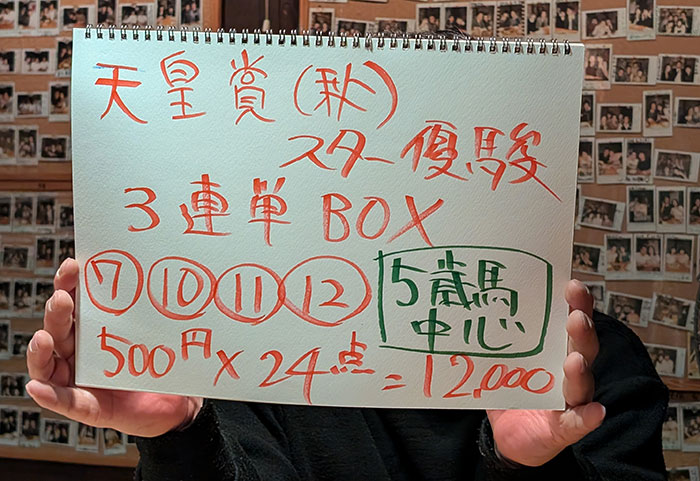 天皇賞(秋)
スター優駿
3連単BOX
⑦⑩⑪⑫
5歳馬
中心
500円×24点=12,000